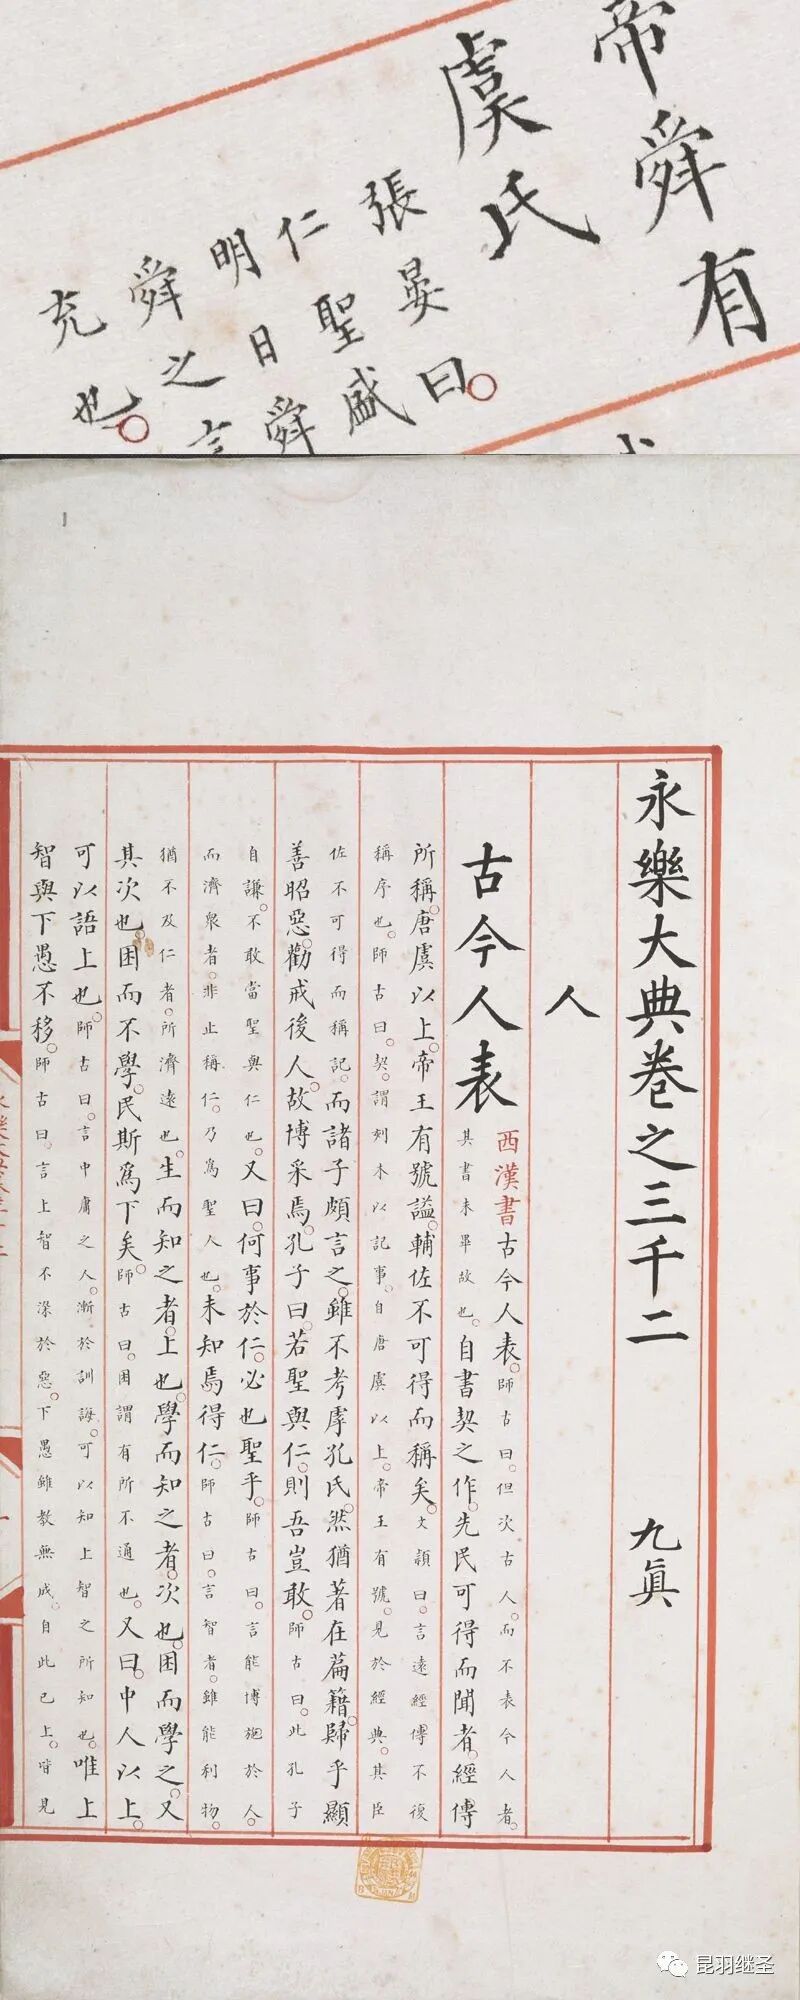 帝舜有
虞氏
張晏曰。
仁聖盛
明曰舜
舜之言
充也。
永樂大典卷之三千二 九眞
人
古今人表
西漢書古今人表。師古曰。但次古人。而不表今人者。
其書未畢故也。自書契之作。先民可得而聞者。經傳
所稱。唐虞以上。帝王有號謚。輔佐不可得而稱矣。文頴曰。言遠經傳不復
稱序也。師古曰。契。謂刻木以記事。自唐虞以上。帝王有號。見於經典。其臣
佐不可得而稱記。而諸子頗言之。雖不考虖孔氏。然猶著在篇籍。歸乎顯
善昭惡。勸戒後人。故博采焉。孔子曰。若聖與仁。則吾豈敢。師古曰。此孔子
自謙。不敢當聖與仁也。又曰。何事於仁。必也聖乎。師古曰。言能博施於人。
而濟衆者。非止稱仁。乃爲聖人也。未知焉得仁。師古曰。言智者。雖能利物。
猶不及仁者。所濟遠也。生而知之者。上也。學而知之者。次也。困而學之。又
其次也。困而不學。民斯爲下矣。師古曰。困謂有所不通也。又曰。中人以上。
可以語上也。師古曰。言中庸之人。漸於訓誨。可以知上智之所知也。唯上
智與下愚不移。師古曰。言上智不染於惡。下愚雖教無成。自此已上。皆見
昆羽继圣